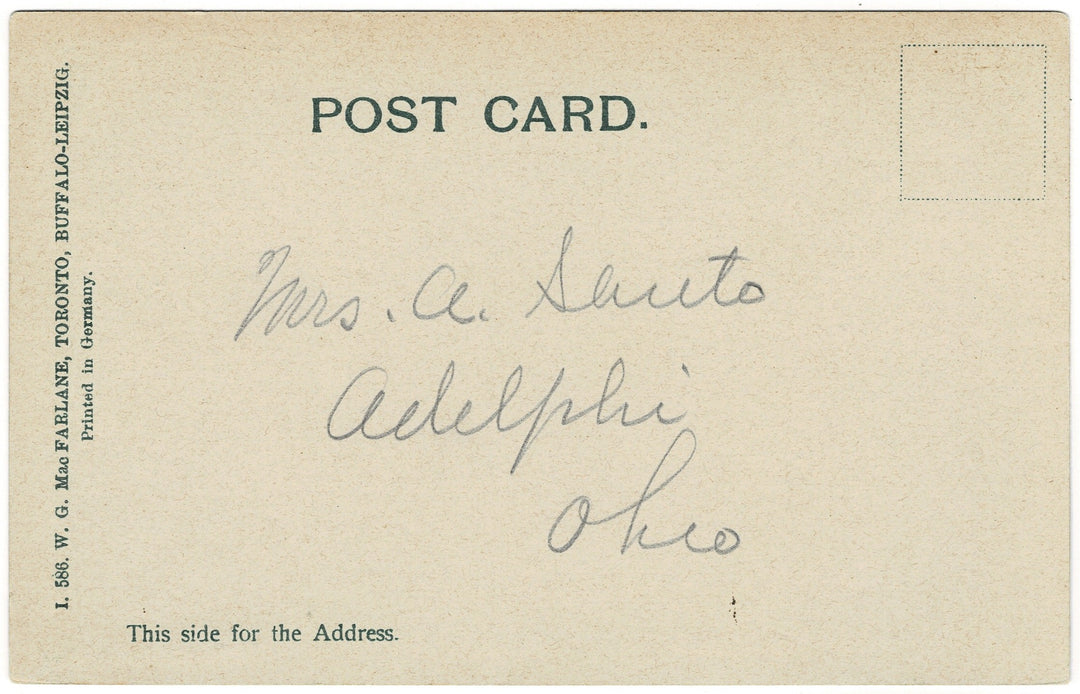 POST CARD.
Mrs. A. Santo
Adelphi
Ohio
This side for the Address.
I. 586. W. G. Mac FARLANE, TORONTO, BUFFALO-LEIPZIG.
Printed in Germany.